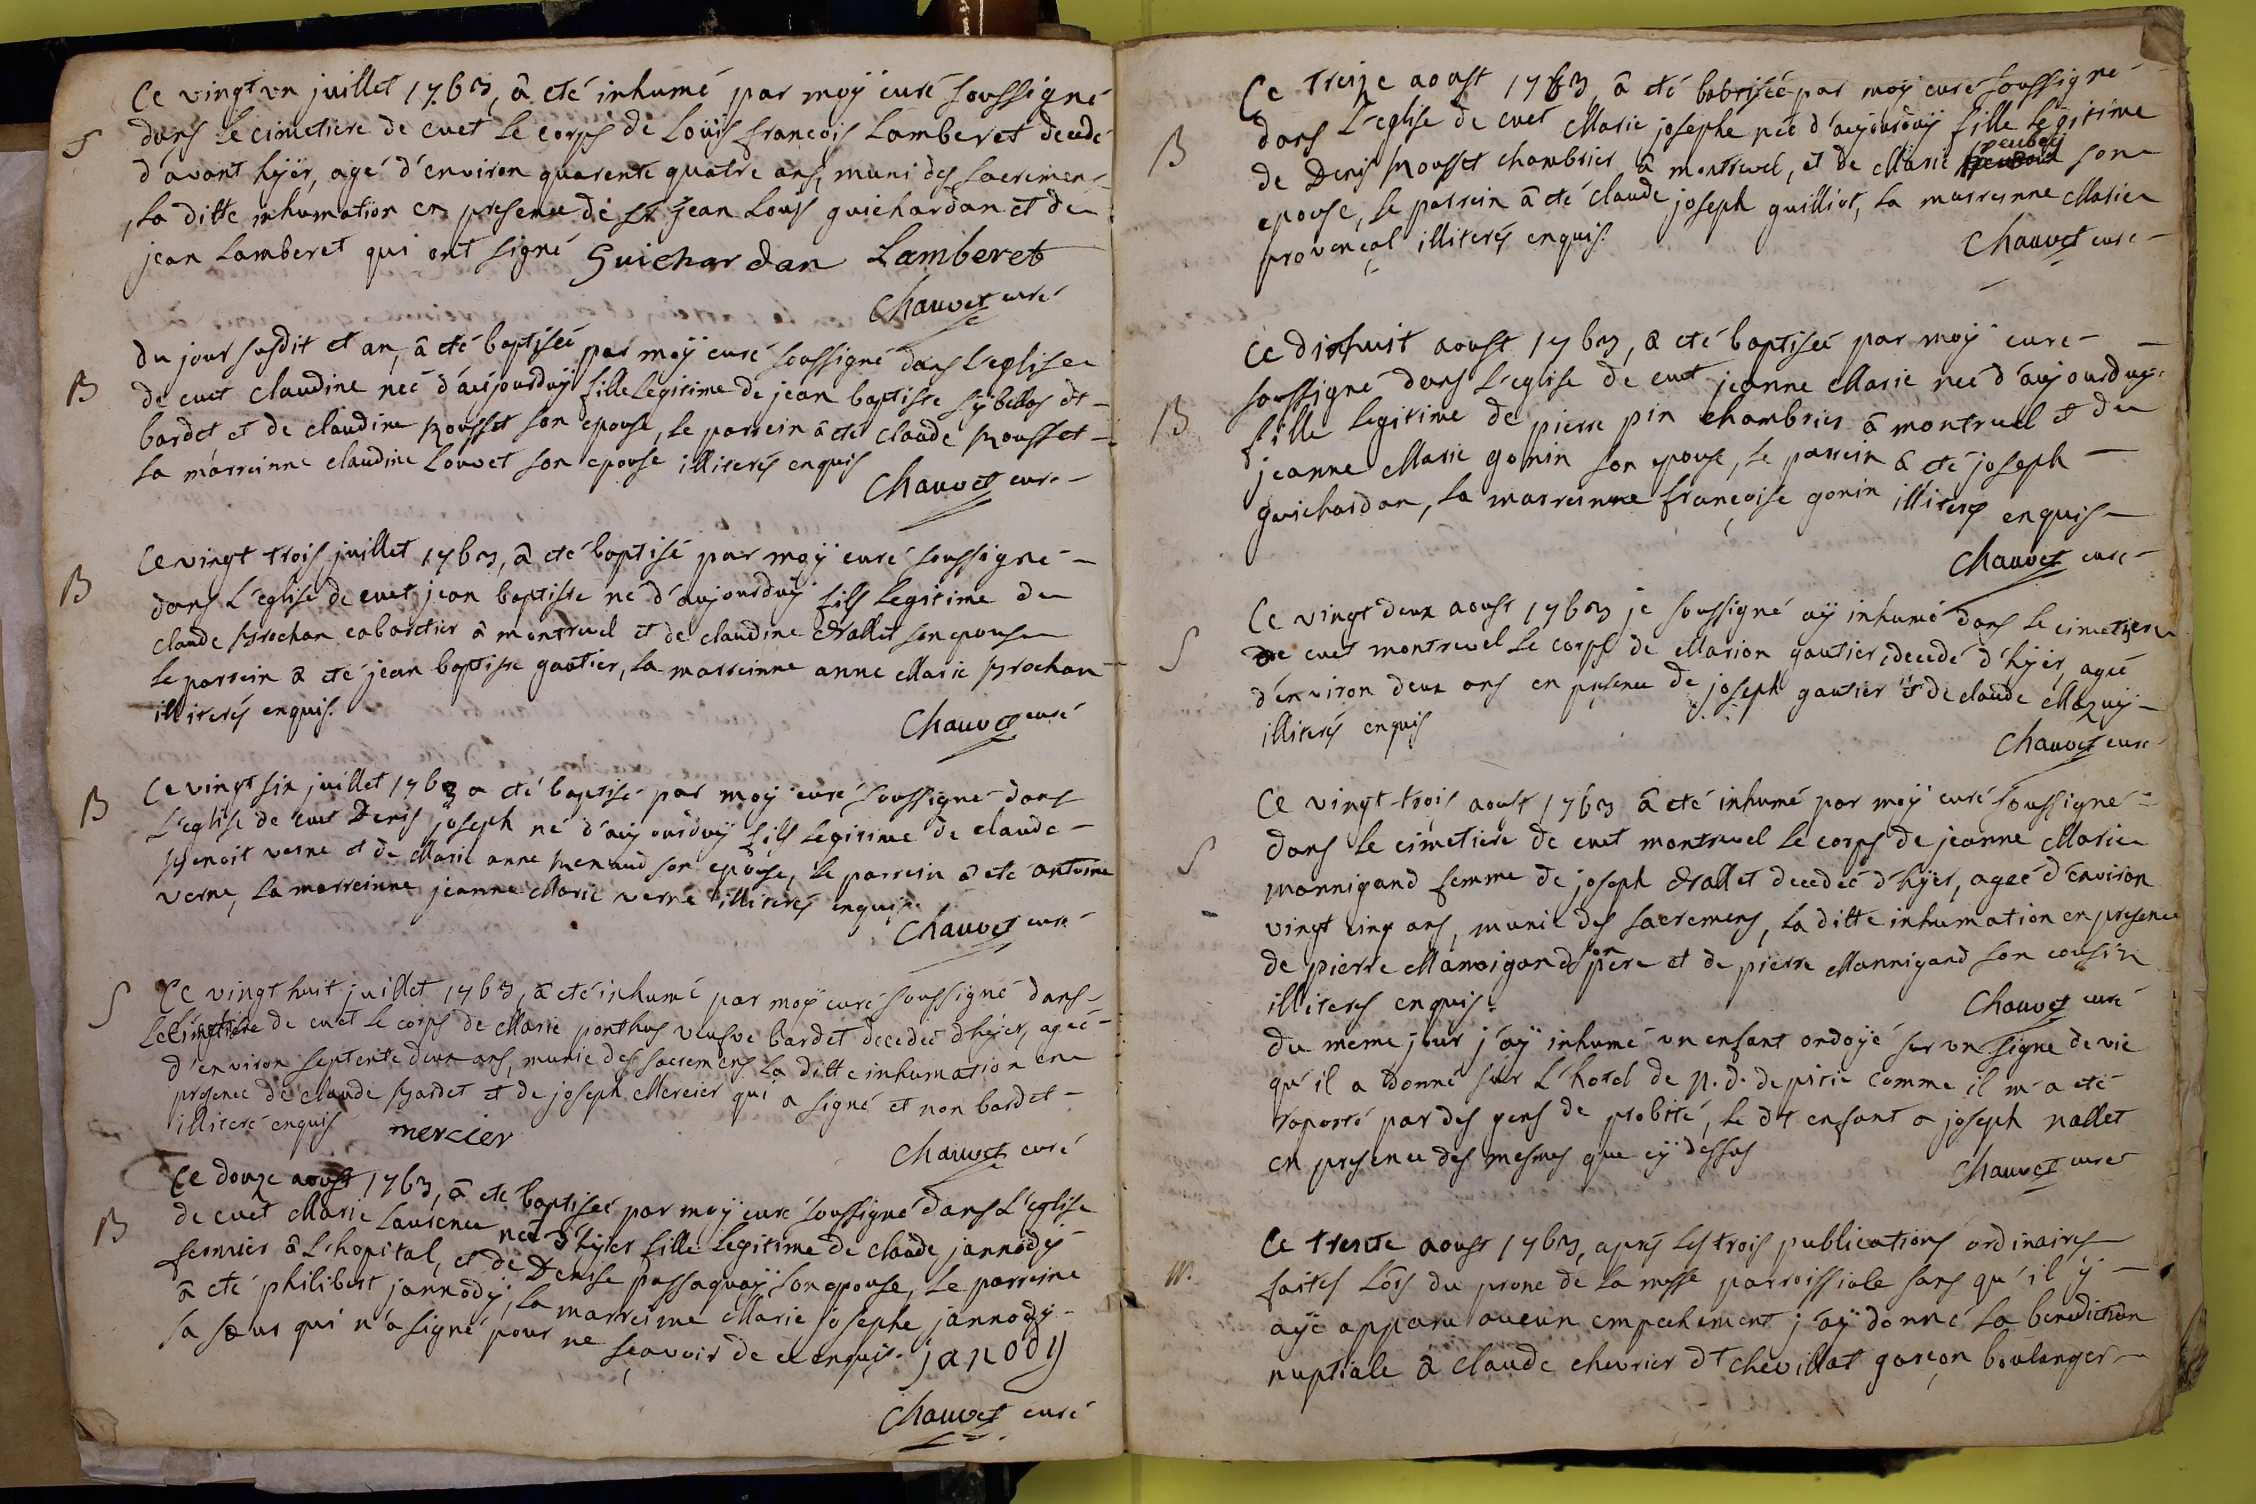 Ce vingt un juillet 1763, â eté inhumé par moÿ curé soussigné
S
dans le cimetiere de cuet le corps de Loüis francois Lamberet decedé
d'avant hÿer, agé d'environ quarente quatre ans, muni des sacremens
, la ditte inhumation en presence de sr jean Louis guichardan et de
jean Lamberet qui ont signé Guichardan Lamberet
Chauvet curé
du jour susdit et an, â eté baptiseé par moÿ curé soussigné dans L'eglise
B
de cuet claudine neé d'aujourduÿ fille Legitime de jean baptiste sÿbellas dt
bardet et de claudine Rousset son epouse, le parrein â eté claude Rousset
la marreinne claudine Louvet son epouse illiterés enquis
Chauvet curé
Ce vingt trois juillet 1763, â eté baptisé par moÿ curé soussigné
B
dans L'eglise de cuet jean baptiste né d'aujourduÿ fils legitime de
claude Brochan cabaretier â montrevel et de claudine Nallet son epouse
le parrein â eté jean baptiste gautier, la marreinne anne Marie Brochan
illiterés enquis.
Chauvet curé
Ce vingt six juillet 1763 a eté baptisé par moÿ curé soussigné dans
B
L'eglise de cuet Denis joseph né d'aujourduÿ fils legitime de claude
Benoit verne et de Marie anne menaud son epouse, le parrein â eté antoine
verne, la marreinne jeanne Marie verne illiterés enquis.
Chauvet curé
Ce vingt huit juillet 1763, â eté inhumé par moÿ curé soussigné dans
S
Le Cimetiere de cuet le corps de Marie ponthus veufve bardet decedeé d'hÿer, ageé
d'environ septente deux ans, munie des sacremens la ditte inhumation en
presence de claude Bardet et de joseph Mercier qui a signé et non bardet
illiteré enquis mercier
Chauvet curé
Ce douze aoust 1763, â eté baptiseé par moÿ curé soussigné dans L'eglise
B
de cuet Marie Laurence neé d'hÿer fille Legitime de claude jannodÿ
fermier â L'hopital, et de Denise passaquaÿ son epouse, le parreine
â eté philibert jannodÿ, la marreine Marie josephe jannodÿ
sa sœur qui n'a signé pour ne sçavoir de ce enquis. janody
Chauvet curé
Ce treize aoust 1763, â eté babtiseé par moÿ curé soussigné
B
dans L'eglise de cuet Marie josephe neé d'aujourduÿ fille Légitime
de Denis Rousset chambrier â montrevel, et de Marie peubeÿ son
epouse, le parrein â eté claude joseph guilliot, la marreinne Marie
provençal illiterés enquis.
Chauvet curé
Ce dixhuit aoust 1763, â eté baptiseé par moÿ curé
B
soussigné dans L'eglise de cuet jeanne Marie neé d'aujourduÿ
fille legitime de pierre pin chambrier â montrevel et de
jeanne Marie gonin son epouse, le parrein â eté joseph
guichardan, la marreinne françoise gonin illiterés enquis
Chauvet curé
Ce vingt deux aoust 1763 je soussigné aÿ inhumé dans le cimetiere
S
de cuet montrevel le corps de Marion gautier, decedé d'hÿer, ageé
d'environ deux ans en presence de joseph gautier et de claude Mazuÿ
illiterés enquis
Chauvet curé
Ce vingt trois aoust 1763 â eté inhumé par moÿ curé soussigné
S
dans le cimetiere de cuet montrevel le corps de jeanne Marie
mannigand femme de joseph Nallet decedeé d'hÿer, ageé d'environ
vingt cinq ans, munie des sacremens, la ditte inhumation en presence
de pierre Mannigand son pere et de pierre Mannigand son cousin
illiterés enquis.
Chauvet curé
du meme jour j'aÿ inhumé un enfant ondoÿé sur un signe de vie
qu'il a donné sur L'hotel de n. d. de pitié comme il m'a eté
raporté par des gens de probité, le dt enfant a joseph nallet
en presence des mesmes que cÿ dessus
Chauvet curé
Ce trente aoust 1763, aprés les trois publications ordinaires
m.
faites lors du prone de la messe parroissiale sans qu'il ÿ
aÿe apparu aucun empechement j'aÿ donné la benediction
nuptiale â claude chevrier dt chevillat garçon boulanger